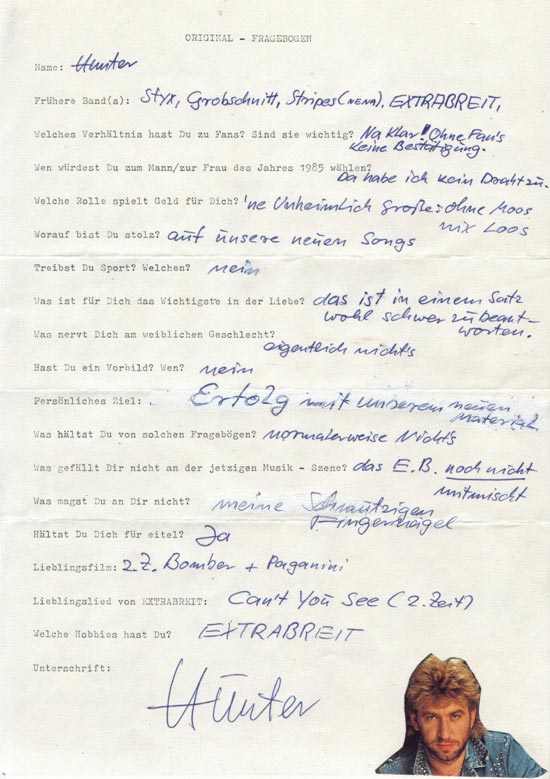 ORIGINAL - FRAGEBOGEN
Name: Hunter
Frühere Band(s): Styx, Grobschnitt, Stripes (NENA), EXTRABREIT,
Welches Verhältnis hast Du zu Fans? Sind sie wichtig? Na Klar! Ohne Fan's
Keine Bestätigung.
Wen würdest Du zum Mann/zur Frau des Jahres 1985 wählen?
Da habe ich kein Draht zu.
Welche Rolle spielt Geld für Dich? 'ne Unheimlich Große: ohne Moos
nix Loos
Worauf bist Du stolz? auf unsere neuen Songs
Treibst Du Sport? Welchen? nein
Was ist für Dich das Wichtigste in der Liebe? das ist in einem Satz
wohl schwer zu beant-
worten.
Was nervt Dich am weiblichen Geschlecht?
eigentlich nichts
Hast Du ein Vorbild? Wen? nein
Persönliches Ziel: Erfolg mit unserem neuen
Material
Was hältst Du von solchen Fragebögen? normalerweise Nichts
Was gefällt Dir nicht an der jetzigen Musik - Szene? das E.B. noch nicht
mitmischt
Was magst Du an Dir nicht? meine Schmutzigen
Fingernägel
Hältst Du Dich für eitel? Ja
Lieblingsfilm: 2.Z. Bomber + Paganini
Lieblingslied von EXTRABREIT: Can't You See (2. Zeit)
Welche Hobbies hast Du? EXTRABREIT
Unterschrift:
Hunter